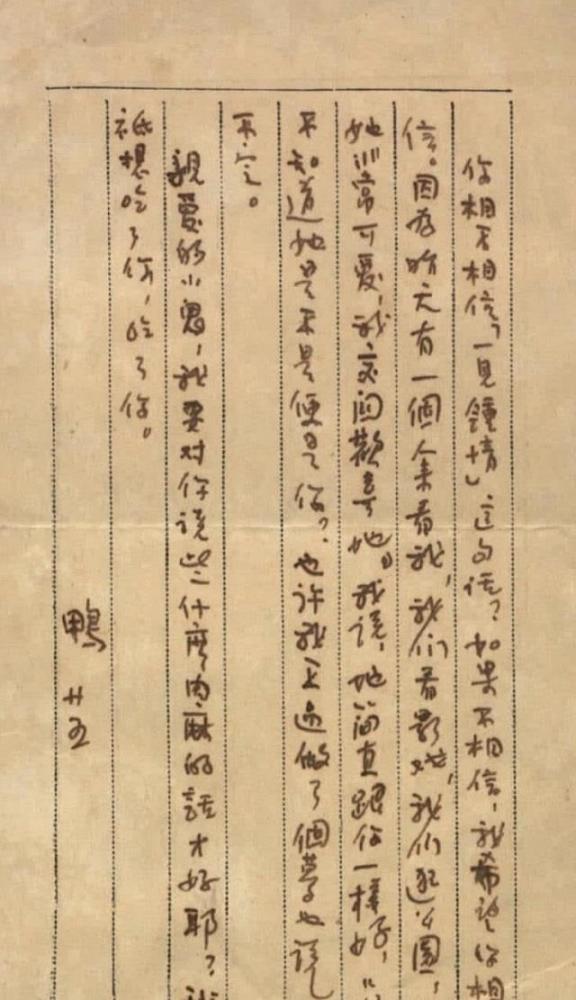 你相不相信「一見鍾情」這句話?如果不相信,我希望你相
信。因為昨天有一個人來看我,我們看影戲,我們逛公園,
她非常可愛,我交關歡喜她。我說,她簡直跟你一樣好,
不知道她是不是便是你?也許我不過做了個夢也說
不定。
親愛的小鬼,我要對你說些什麼肉麻的話才好耶?我
祇想吃了你,吃了你。
鴨 廿五